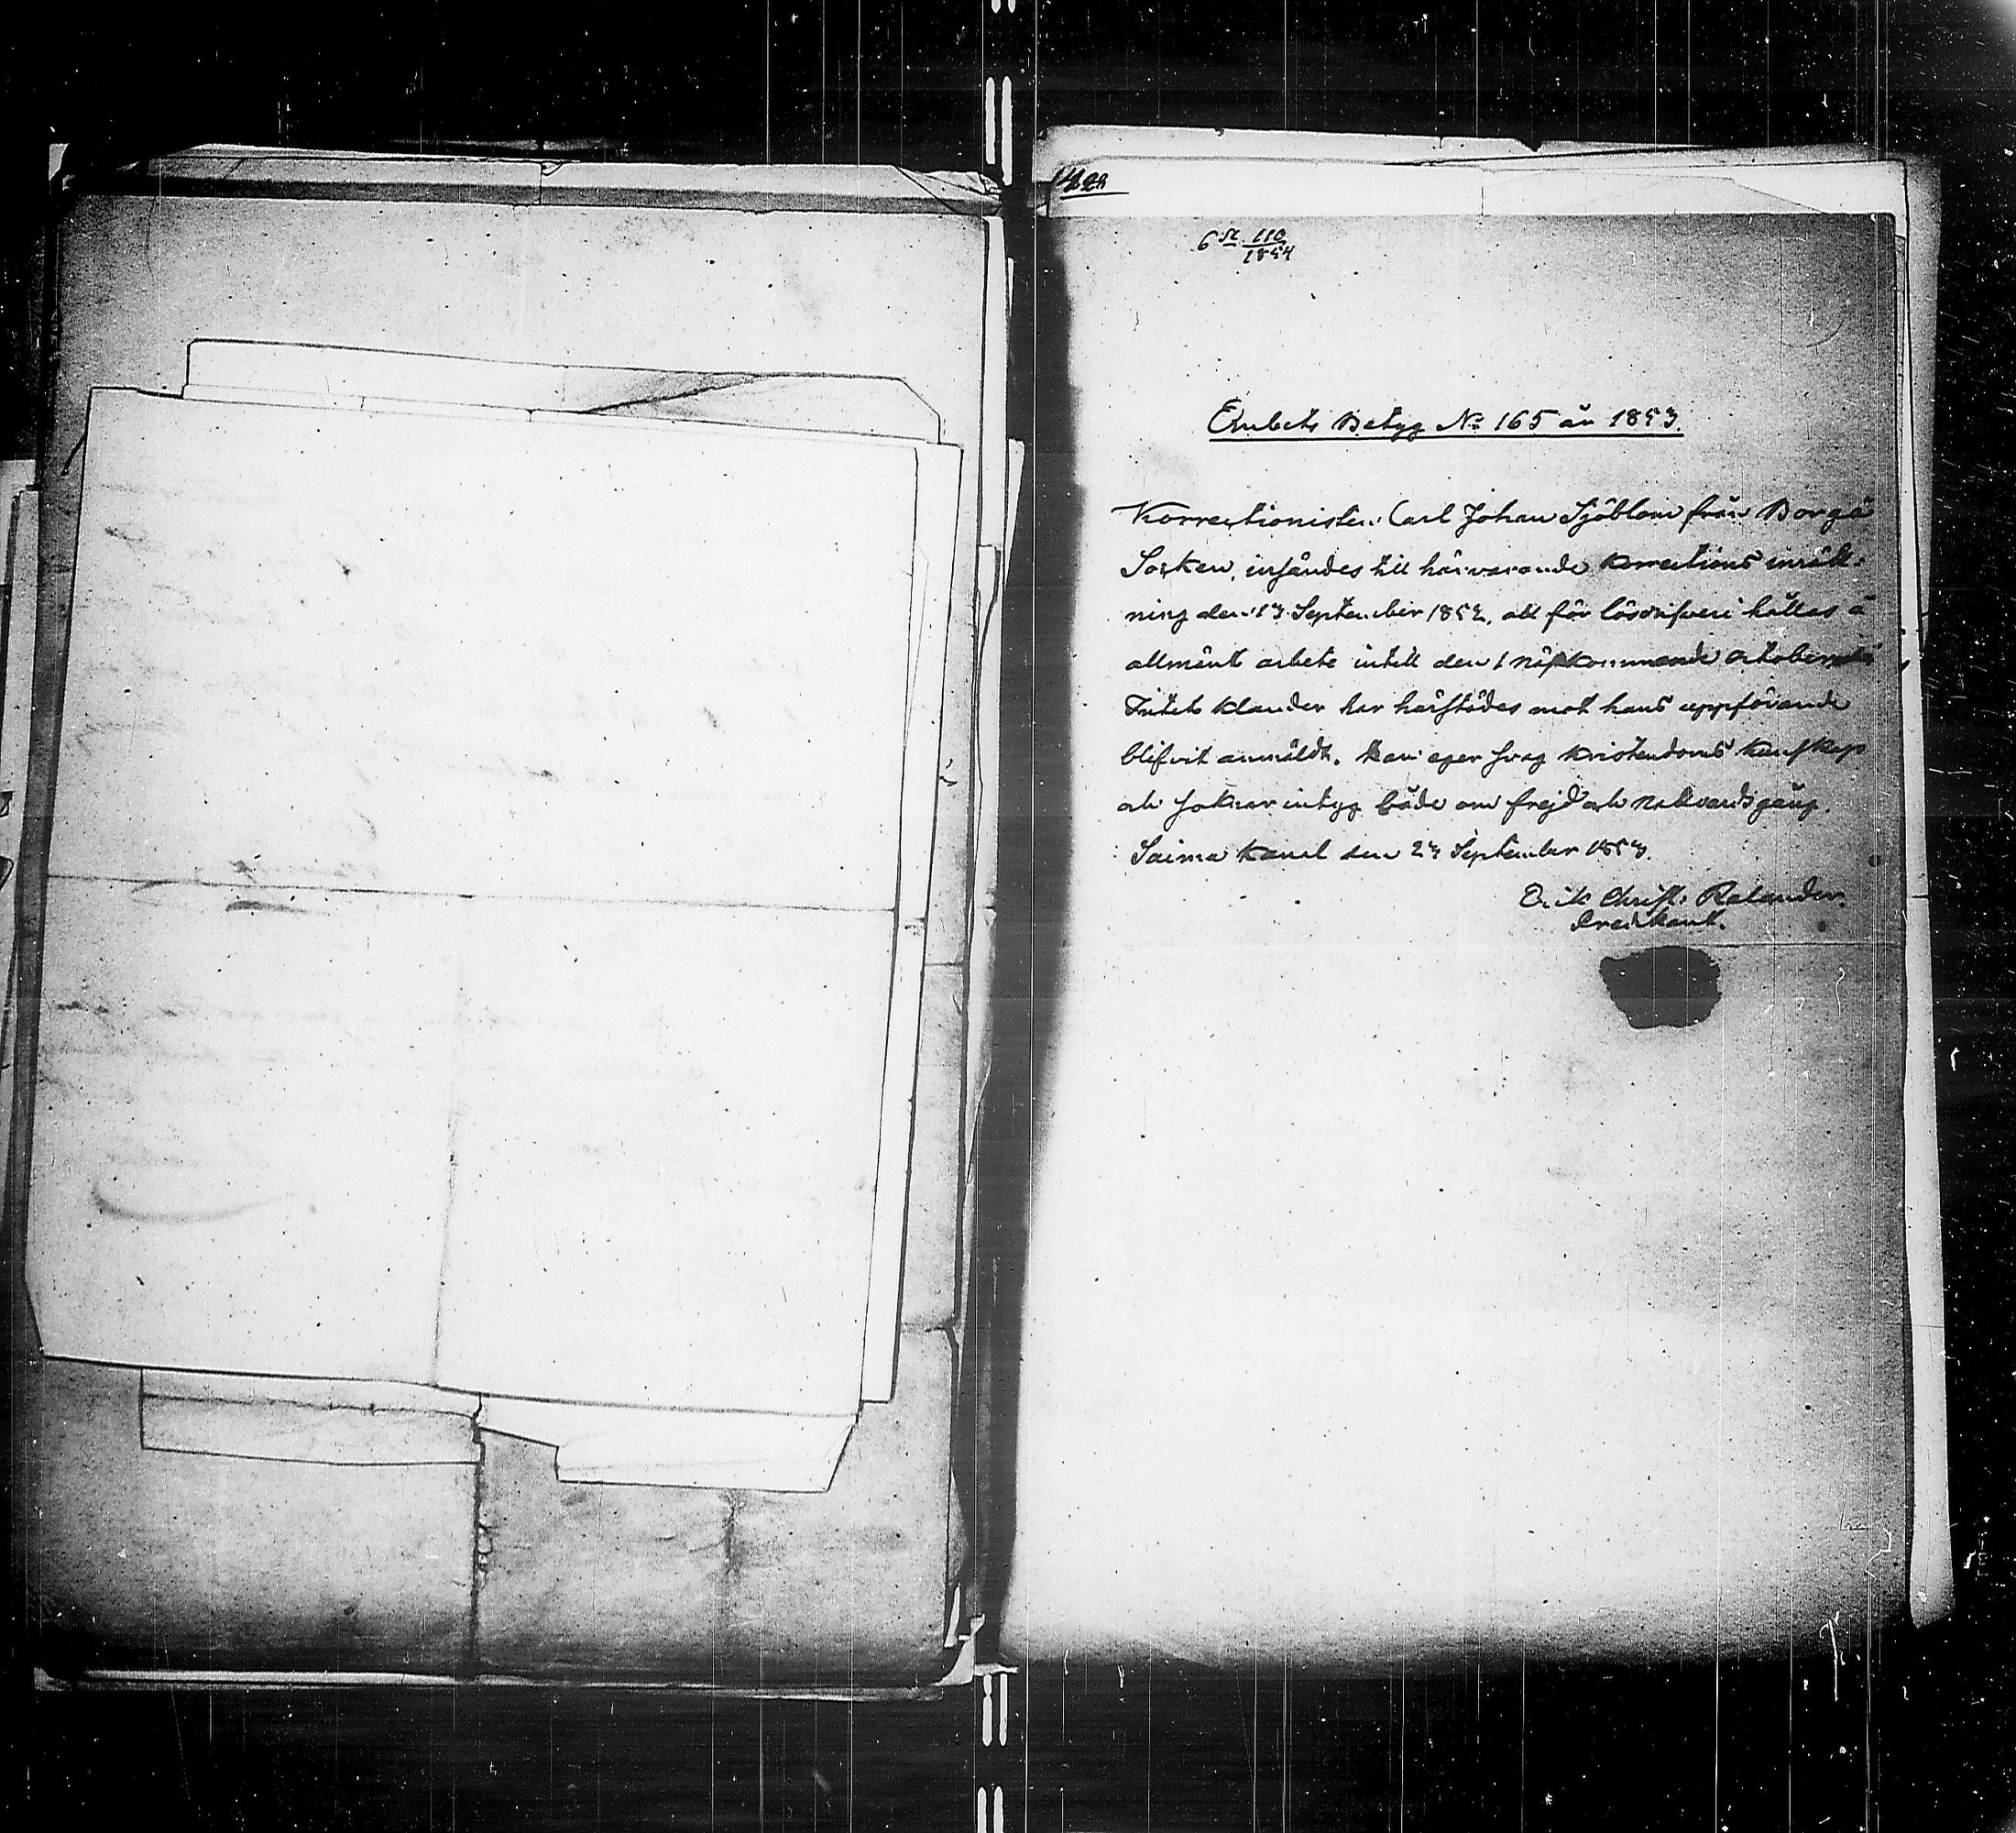 6 St 110
1854
Embets Betyg No 165 år 1853.
Korrectionisten Carl Johan Sjöblom från Borgå
Socken, insändes till härvarande Korrections inrätt:
ning den 13 September 1852, att för lösdrifveri hållas å
allmänt arbete intill den 1 nästkommande October
Intet klander har härstädes mot hans uppförande
blifvit anmäldt. Han eger svag kristendoms kunskap
och saknar intyg både om frejd och nattvardsgång.
Saima Kanal den 23 September 1853.
Erik Christ. Relander.
Predikant.